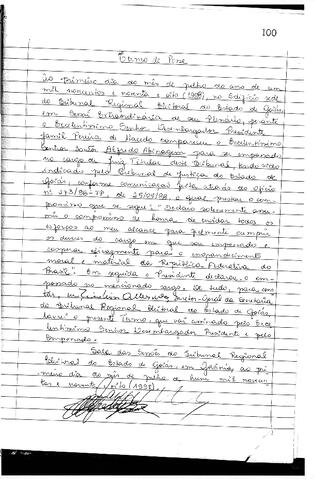 100
Termo de Posse
Ao primeiro dia do mês de julho do ano de um
mil novecentos e noventa e oito (1998), no Edifício sede
do Tribunal Regional Eleitoral do Estado de Goiás,
em Sessão Extraordinária de seu Plenário, perante
o Excelentíssimo Senhor Desembargador Presidente
Jamil Pereira de Macedo compareceu o Excelentíssimo
Senhor Doutor Alfredo Abinagem para se empossado
no cargo de Juiz Titular deste Tribunal, tendo sido
indicado pelo Tribunal de Justiça do Estado de
Goiás, conforme comunicação feita através do ofício
nº 273/98-TP de 25/05/98, o qual prestou o com-
promisso que se segue: "Declaro solenemente assu-
mir o compromisso de honra de envidar todos os
esforços ao meu alcance para fielmente cumprir
os deveres do cargo em que sou empossado e
cooperar eficazmente para o engrandecimento
moral e material da República Federativa do
Brasil". Em seguida o Presidente declarou o em-
possado no mencionado cargo. De tudo, para cons-
tar, eu Secretário-Geral da Secretaria
do Tribunal Regional Eleitoral do Estado de Goiás,
lavrei o presente Termo, que vai assinado pelo Exce-
lentíssimo Senhor Desembargador Presidente e pelo
Empossado.
Sala das Sessões do Tribunal Regional
Eleitoral do Estado de Goiás, em Goiânia, ao pri-
meiro dia do mês de julho de hum mil novecen-
tos e noventa e oito (1998).